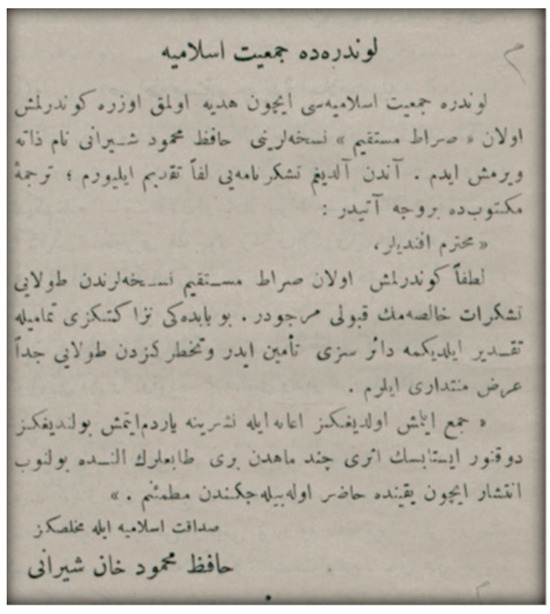 لوندره‌ده جمعيت اسلاميه
لوندره جمعيت اسلاميه‌سى ايچون هديه اولمق اوزره كوندرلمش
اولان « صراط مستقيم » نسخه‌لرينى حافظ محمود شيرانى نام ذاته
ويرمش ايدم . آندن آلديغم تشكرنامه‌يى لفاً تقديم ايليورم ؛ ترجمهٔ
مكتوب‌ده بروجه آتيدر :
« محترم افنديلر ،
لطفاً كوندرلمش اولان صراط مستقيم نسخه‌لرندن طولايى
تشكرات خالصه‌مك قبولى مرجودر . بو بابده‌كى نزاكتكزى تماميله
تقدير ايلديكمه دائر سزى تأمين ايدر وتخطركزدن طولايى جداً
عرض منتدارى ايلرم .
« جمع ايتمش اولديغكز اعانه ايله نشرينه ياردم ايتمش بولنديغكز
دوقتور ايستابسك اثرى چند ماهدن برى طابعلرك النده بولنوب
انتشار ايچون يقينده حاضر اوله‌بيله‌جكندن مطمئنم . »
صداقت اسلاميه ايله مخلصكز
حافظ محمود خان شيرانى